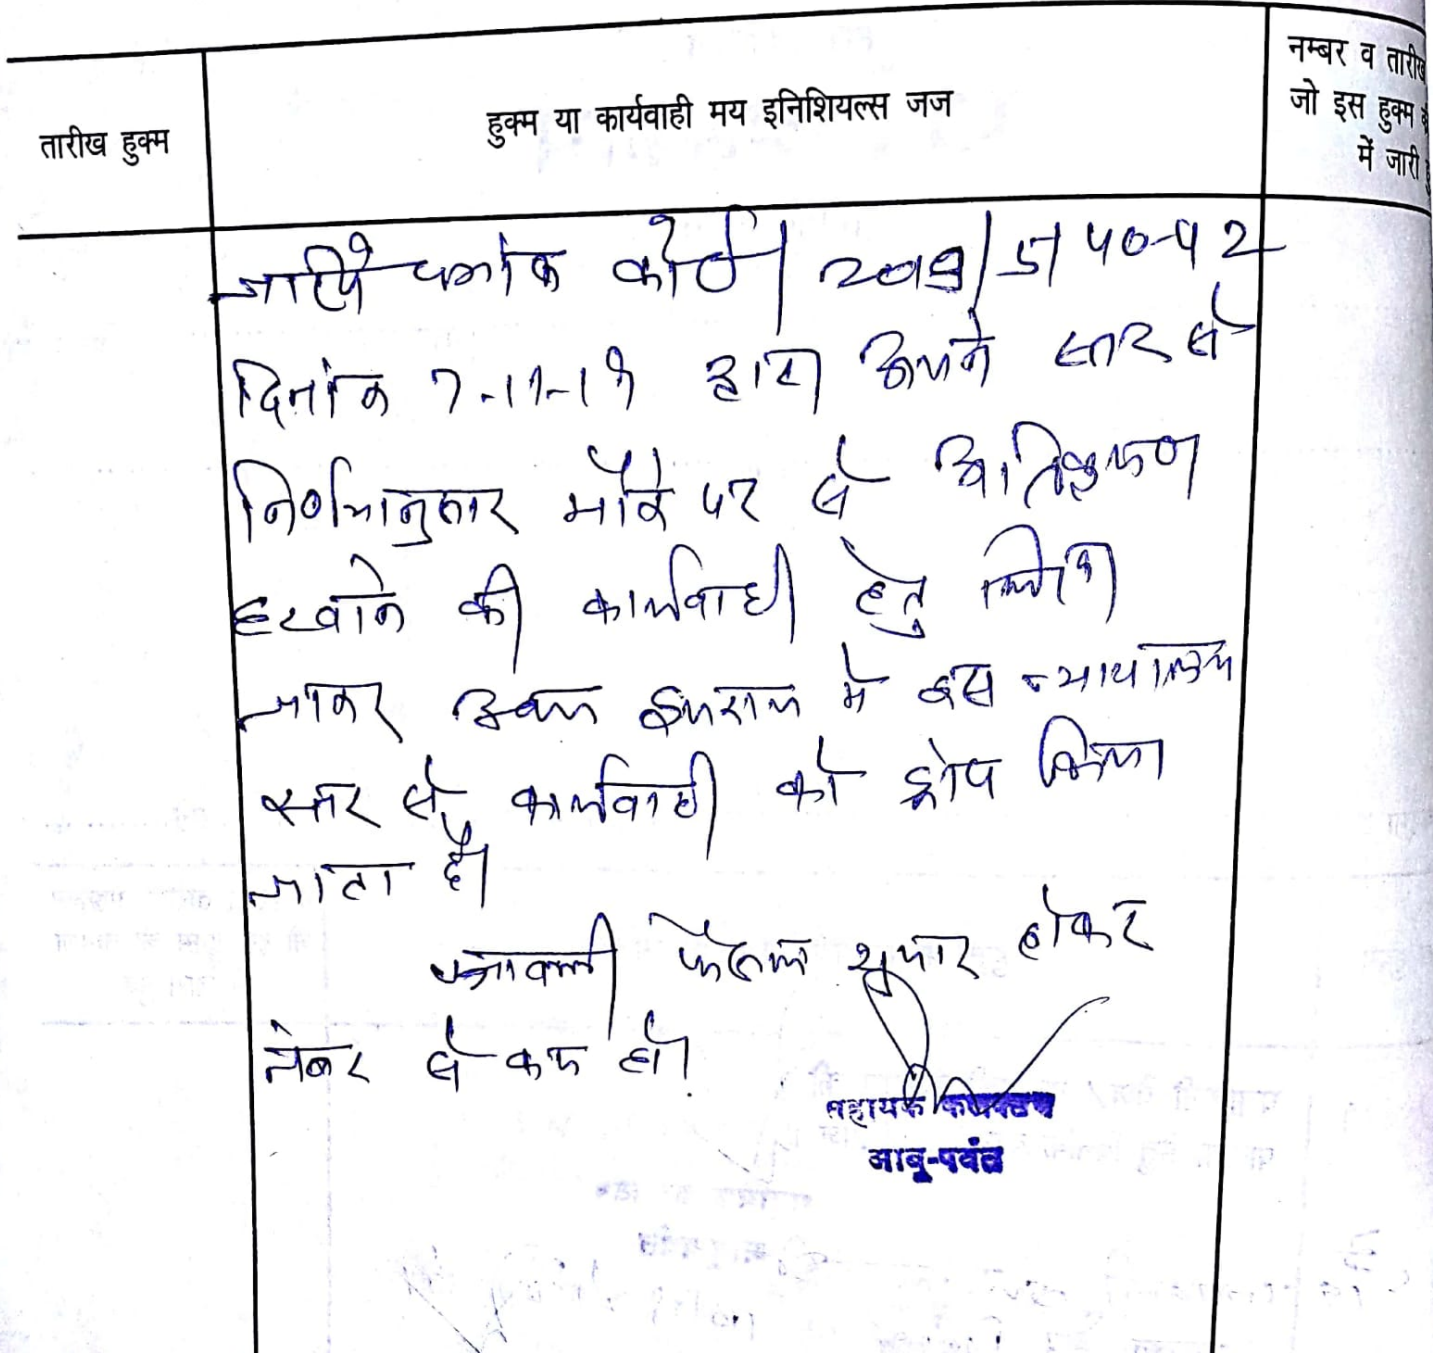 तारीख हुक्म
हुक्म या कार्यवाही मय इनिशियल्स जज
नम्बर व तारीख
जो इस हुक्म
में जारी
जरिये क्रमांक कोर्ट/2019/5140-42
दिनांक 7-11-19 द्वारा अपने स्तर से
निर्णयानुसार मौके पर से अतिक्रमण
हटवाने की कार्यवाही हेतु लिखा
जाकर उक्त प्रकरण में इस न्यायालय
स्तर से कार्यवाही को ड्रोप किया
जाता है।
पत्रावली फैसल शुमार होकर
नंबर से कम हो।
सहायक कलक्टर
आबू-पर्वत